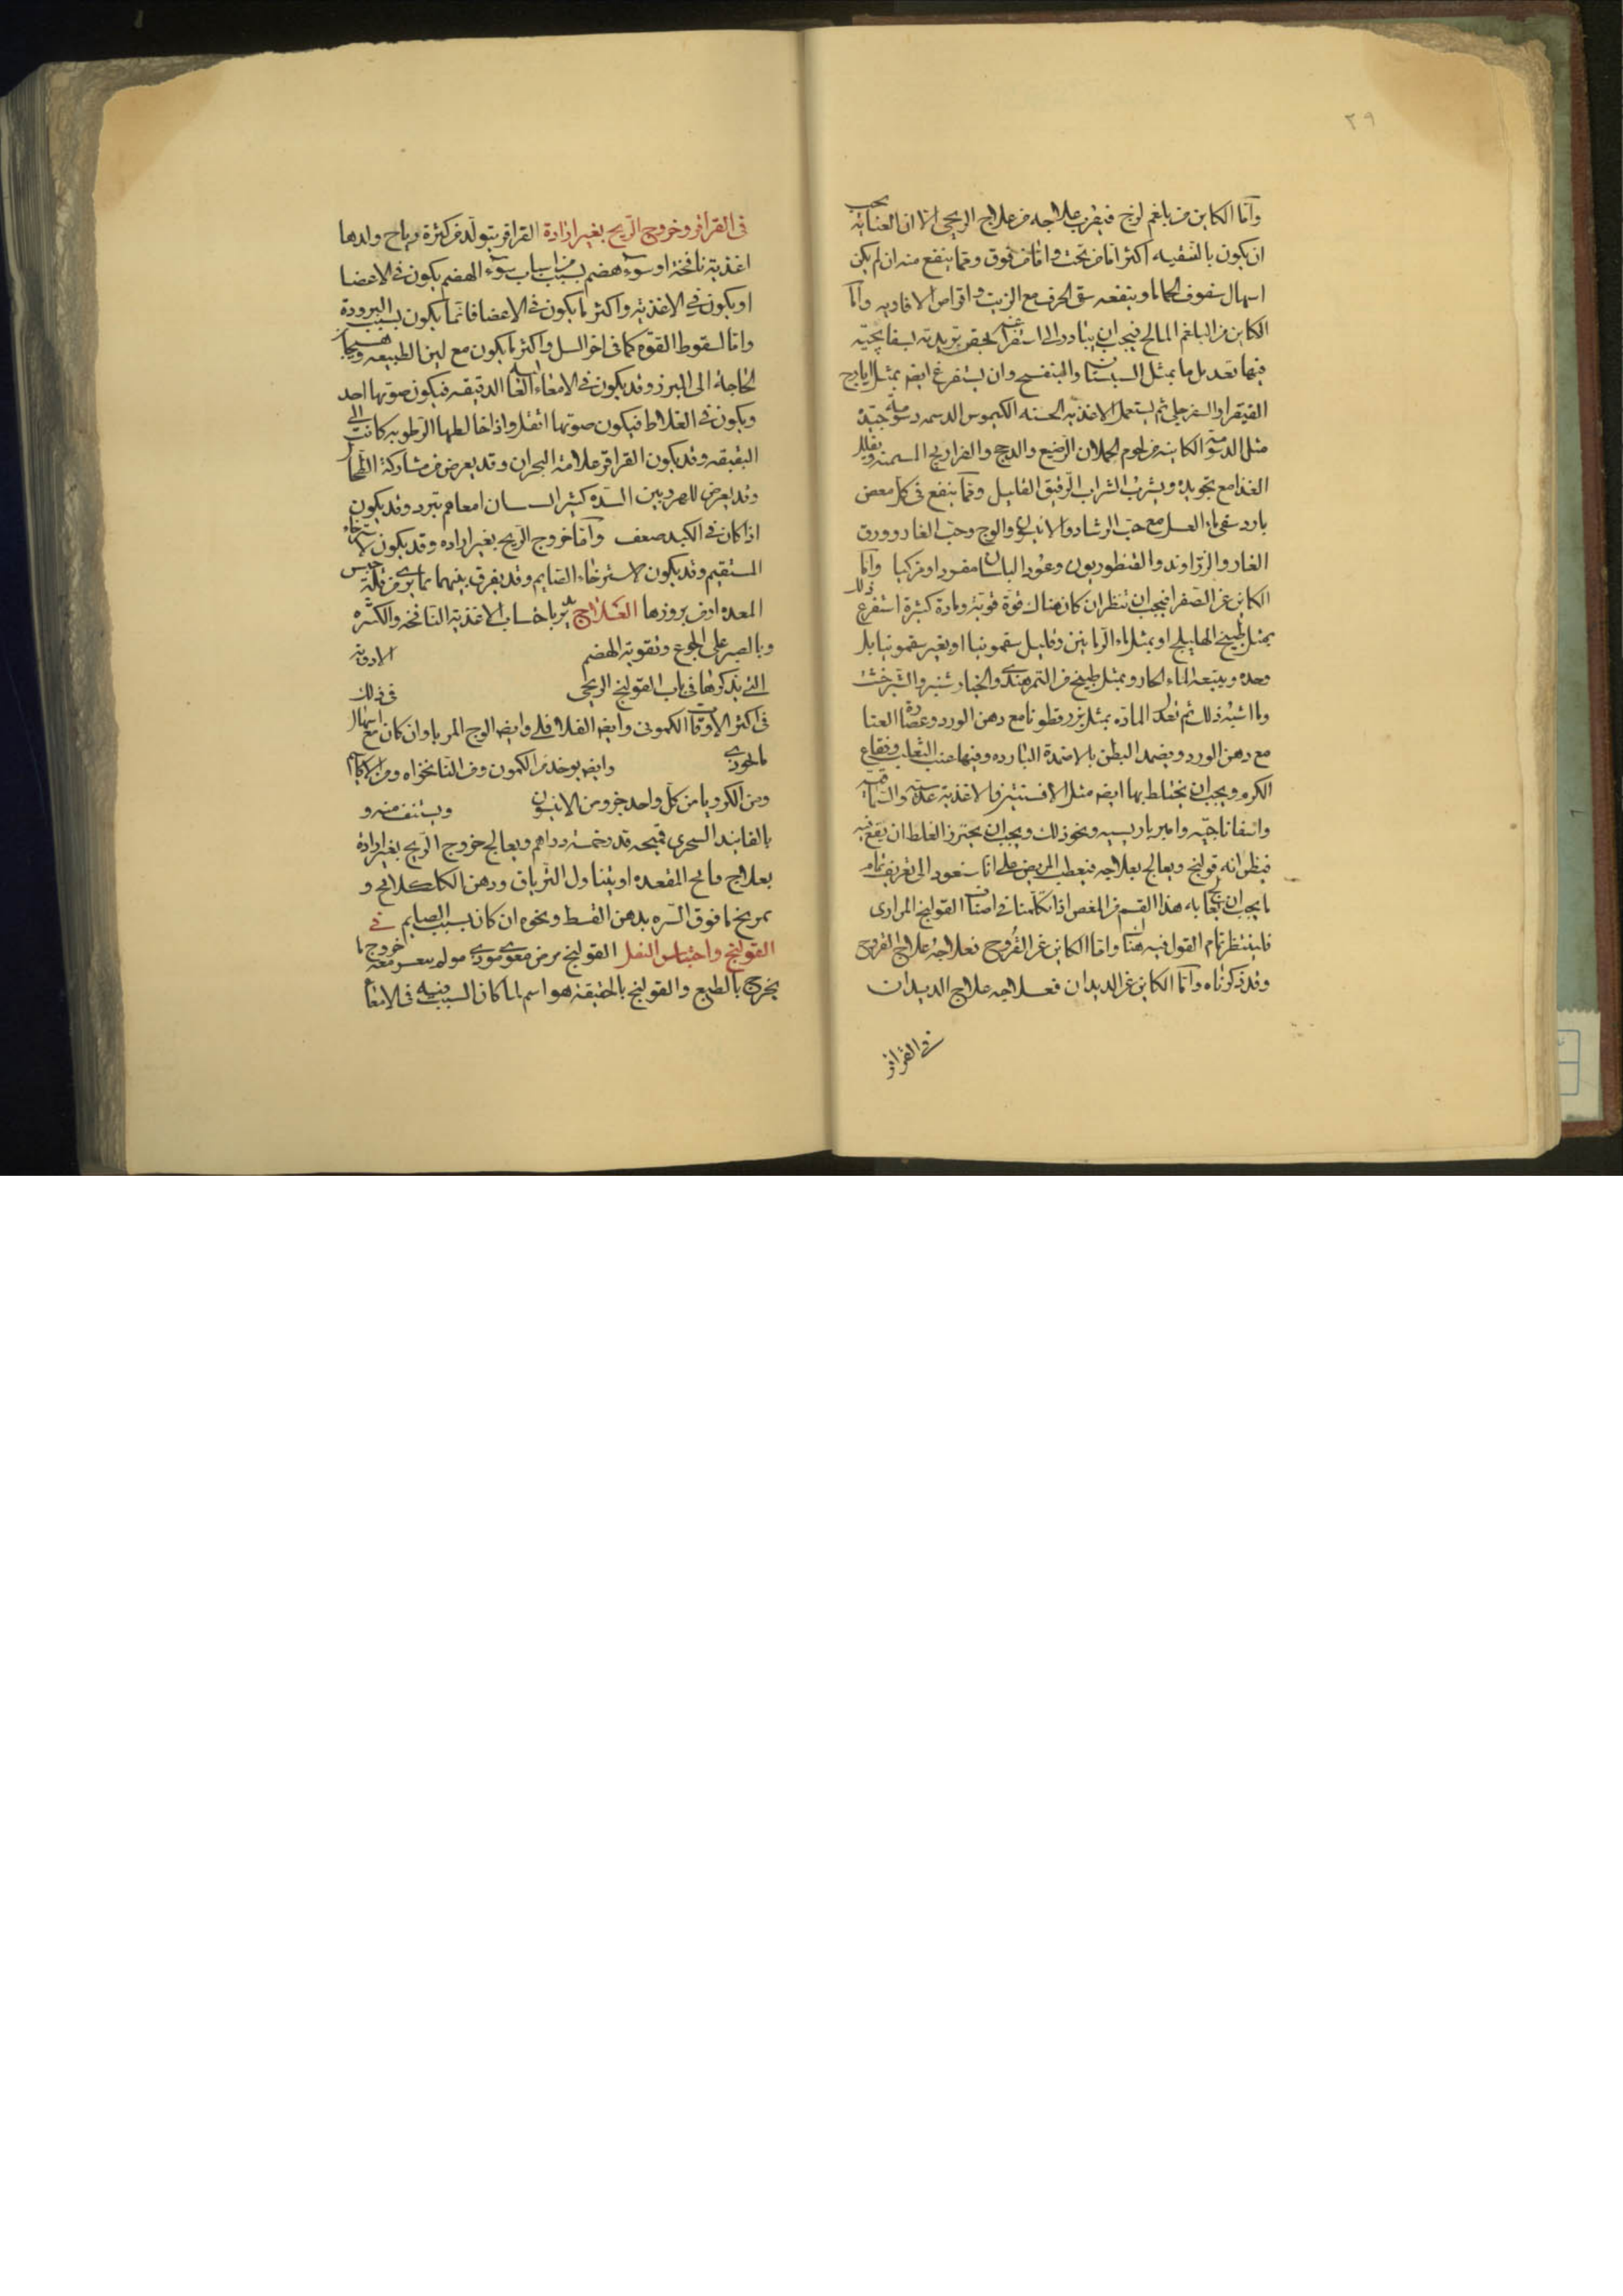 ٢٩
واما الكاين من بلغم لزج فيقرب علاجه من علاج الريحى الا ان العناية يجب
ان يكون بالتنقيه اكثر اما من تحت واما من فوق ومما ينفع منه ان لم يكن
اسهال سفوف الحماما وينفعه سقى الحرف مع الزيت واقراص الافاويه واما
الكاين من البلغم المالح فيجب ان يبادر الى استفراغه بحقن تربدية بسفايجية
فيها تعديل ما بمثل السبستان والبنفسج وان يستفرغ ايضه بمثل ايارج
الفيقرا والسفرجلى ثم يستعمل الاغذية الحسنه الكيموس الدسمه دسومة جيدة
مثل الدسومة الكاينه من لحوم الحملان الرضيع والدجج والفراريج المسمنه وتقليل
الغذا مع تجويده ويشرب الشراب الرقيق القليل ومما ينفع فى كل مغص
بارد سقى ماء العسل مع حب الرشاد والانيسون والوج وحب الغار وورق
الغار والزراوند والقنطوريون وعود البلسان مفرد او مركبا واما
الكاين عن الصفرا فيجب ان تنظر ان كان هناك قوة قوية ومادة كثيرة استفرغ ذلك
بمثل طبيخ الهليلج او بمثل ماء الرمانين وقليل سقمونيا او بغير سقمونيا بل
وحده ويتبعه الماء الحار وبمثل طبيخ من التمر هندى والخيار شنبر والشيرخشت
وما اشبه ذلك ثم تعدل المادة بمثل بزر قطونا مع دهن الورد وعصارة القثا
مع دهن الورد ويضمد البطن بالاضمدة البارده وفيها عنب الثعلب وفقاح
الكرم ويجب ان يختلط بها ايضه مثل الافسنتين والاغذية عدسية وسماقيه
واسفاناخيه واميرباريسيه ونحو ذلك ويجب ان يحترز الغلط ان يقع فيه
فيظن انه قولنج ويعالج بعلاجه فيعطب المريض على انا سنعود الى تعريف تمام
ما يجب ان يعالج به هذا القسم من المغص اذا تكلمنا فى اصناف القولنج المرارى
فلينتظر تمام القول فيه هناك واما الكاين عن القروح فعلاجه علاج القروح
وقد ذكرناه واما الكاين عن الديدان فعلاجه علاج الديدان
فى القراقر
فى القراقر وخروج الريح بغير ارادة القراقر يتولد من كثرة رياح ولدها
اغذية نافخة او سوء هضم بسبب من اسباب سوء الهضم يكون فى الاعضا
او يكون فى الاغذية واكثر ما يكون فى الاعضا فانما يكون بسبب البرودة
واما لسقوط القوة كما فى اخر السل واكثر ما يكون مع لين الطبيعه وهيجان
الحاجة الى البراز وقد يكون فى الامعاء العاليه الدقيقه فيكون صوتها احد
ويكون فى الغلاظ فيكون صوتها اثقل واذا خالطها الرطوبه كانت الى
البقبقه وقد يكون القراقر علامة البحران وقد يعرض من مشاركة الطحال
وقد يعرض للمرودين السده كثيرا لسان امعاهم تبرد وقد يكون
اذا كان فى الكبد ضعف واما خروج الريح بغير اراده وقد يكون لاسترخاء
المستقيم وقد يكون لاسترخاء الصايم وقد يفرق بينهما بما يرى من قلة حبس
المعده او من بروزها العلاج يدبر باجتناب الاغذية النافخه والكثره
وبالصبر على الجوع وتقوية الهضم الادوية
التى نذكرها فى باب القولنج الريحى فى ذلك
فى اكثر الاوقات الكمونى وايضه الفلافلى وايضه الوج المربا وان كان مع اسهال
فالخوزى وايضه يوخذ من الكمون ومن النانخواه ومن الكاشم
ومن الكرويا من كل واحد جزو من الانيسون ويستف منه و
بالفانيد السجزى قميحه قدر خمسة دراهم ويعالج خروج الريح بغير ارادة
بعلاج فالج المقعده او يتناول الترياق ودهن الكلكلانج و
تمريخ ما فوق السره بدهن القسط ونحوه ان كان بسبب الصايم فى
القولنج واحتباس الثفل القولنج مرض معوى موذى مولم يتعسر معه خروج ما
يخرج بالطبع والقولنج بالحقيقة هو اسم لما كان السبب فيه فى الامعاء